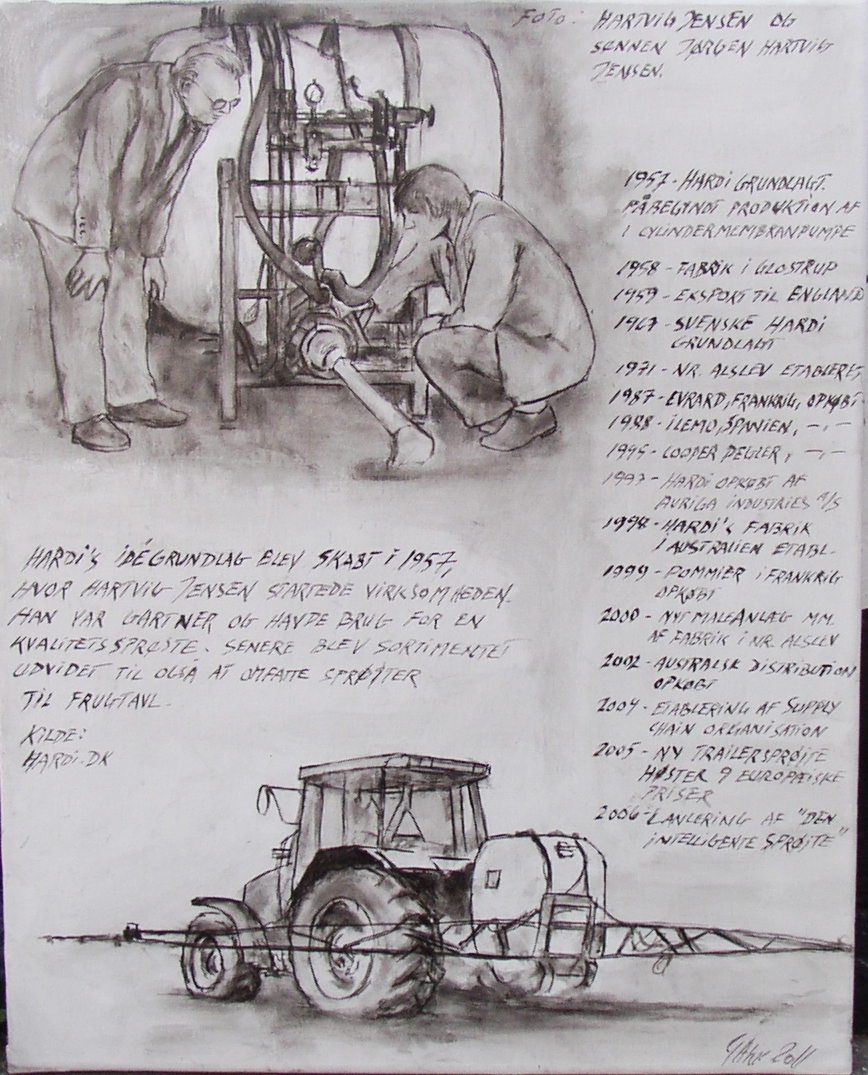 FOTO: HARTVIG JENSEN OG
SØNNEN JØRGEN HARTVIG
JENSEN.
1957 - HARDI GRUNDLAGT.
PÅBEGYNDT PRODUKTION AF
1 CYLINDERMEMBRANPUMPE
1958 - FABRIK I GLOSTRUP
1959 - EKSPORT TIL ENGLAND
1967 - SVENSKE HARDI
GRUNDLAGT
1971 - NR. ALSLEV ETABLERET,
1987 - EVRARD, FRANKRIG, OPKØBT
1988 - ILEMO, SPANIEN, -,-
1995 - COOPER PEGLER, -,-
1997 - HARDI OPKØBT AF
AURIGA INDUSTRIES A/S
1998 - HARDI'S FABRIK
I AUSTRALIEN ETABL.
1999 - POMMIER I FRANKRIG
OPKØBT
2000 - NYT MALEANLÆG MM.
AF FABRIK I NR. ALSLEV
2002 - AUSTRALSK DISTRIBUTION
OPKØBT
2004 - ETABLERING AF SUPPLY
CHAIN ORGANISATION
2005 - NY TRAILERSPRØJTE
HØSTER 9 EUROPÆISKE
PRISER
2006 - LANCERING AF "DEN
INTELLIGENTE SPRØJTE"
HARDI'S IDÉGRUNDLAG BLEV SKABT I 1957,
HVOR HARTVIG JENSEN STARTEDE VIRKSOMHEDEN.
HAN VAR GARTNER OG HAVDE BRUG FOR EN
KVALITETSSPRØJTE. SENERE BLEV SORTIMENTET
UDVIDET TIL OGSÅ AT OMFATTE SPRØJTER
TIL FRUGTAVL.
KILDE:
HARDI.DK
2011